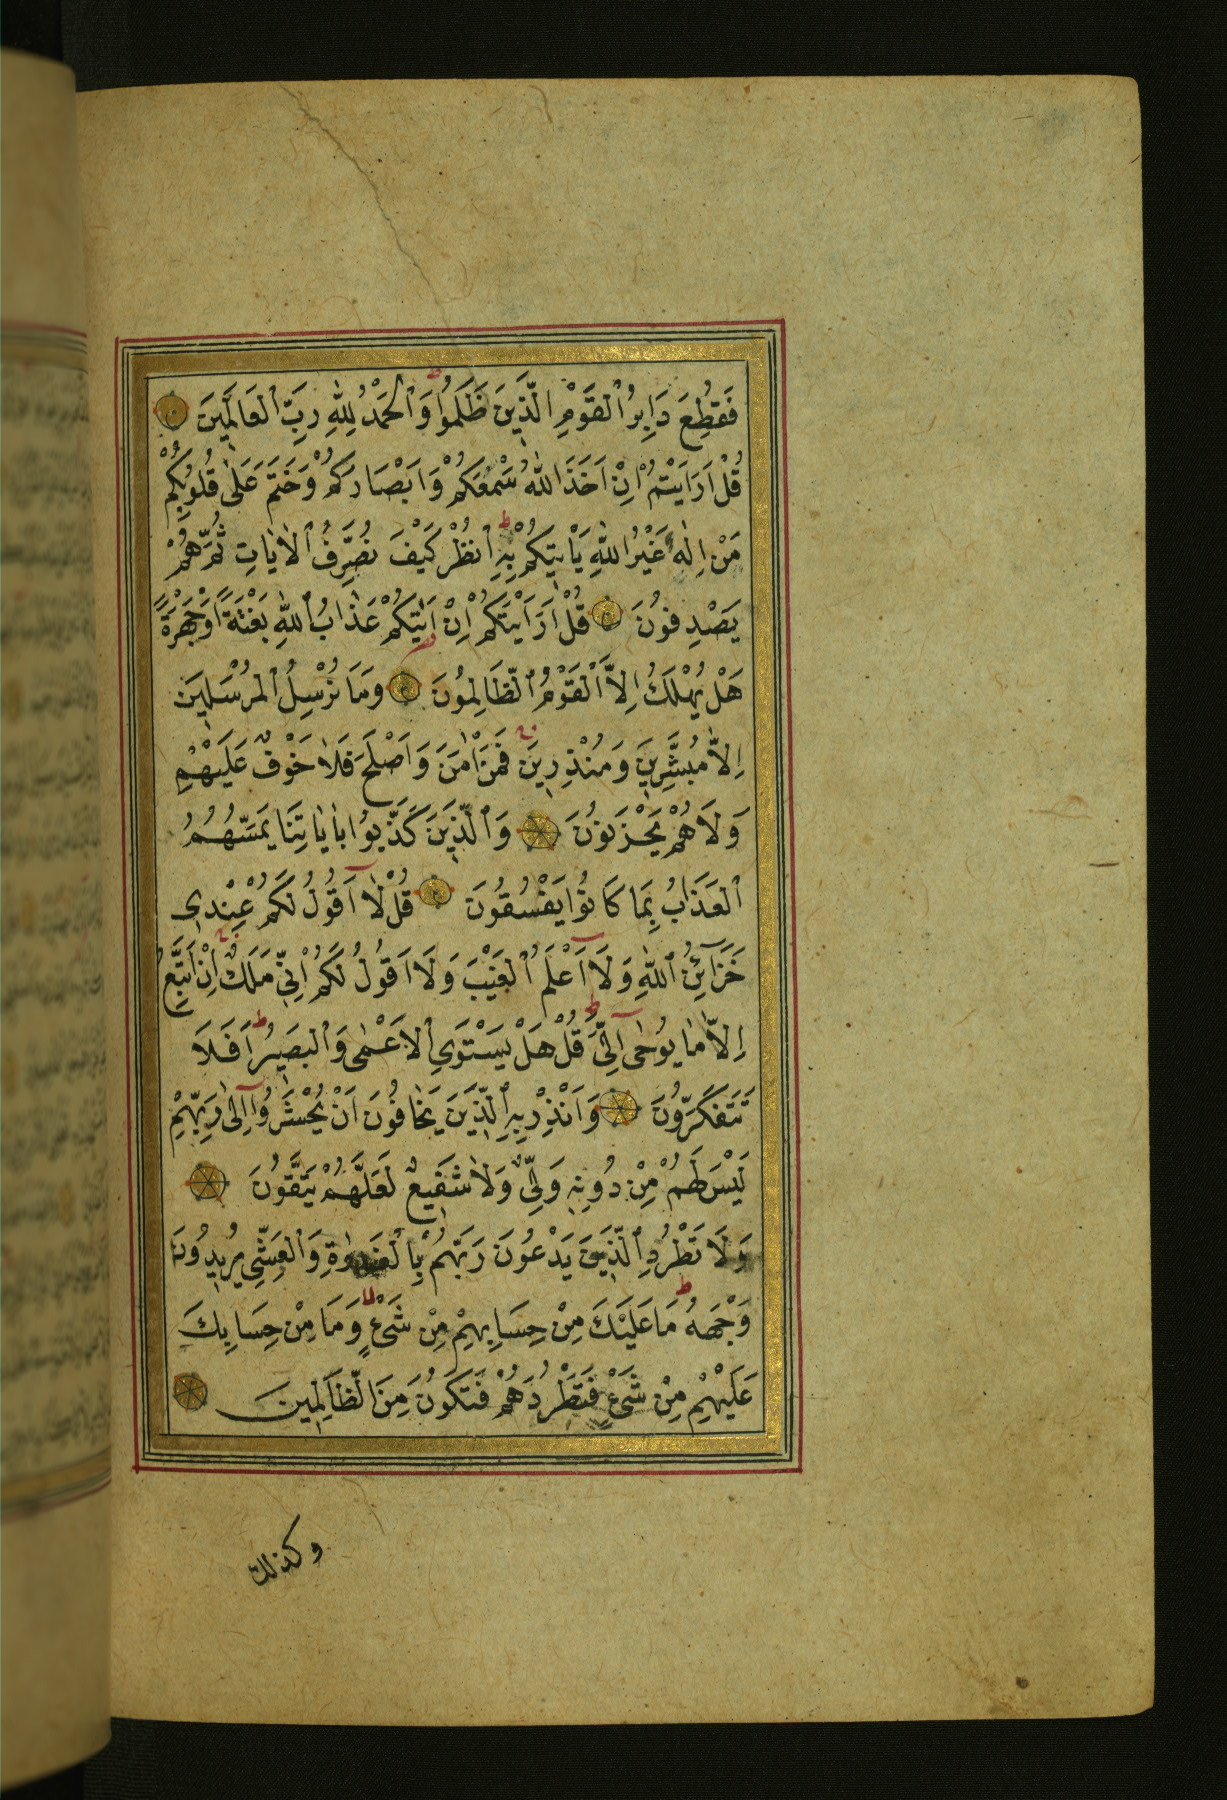 فَقُطِعَ دَابِرُ ٱلْقَوْمِ الَّذِينَ ظَلَمُوا وَٱلْحَمْدُ لِلّٰهِ رَبِّ ٱلْعَالَمِينَ
قُلْ اَرَاَيْتُمْ اِنْ اَخَذَ اللّٰهُ سَمْعَكُمْ وَاَبْصَارَكُمْ وَخَتَمَ عَلٰى قُلُوبِكُمْ
مَنْ اِلٰهٌ غَيْرُ اللّٰهِ يَاْتِيكُمْ بِهِ ٱنْظُرْ كَيْفَ نُصَرِّفُ ٱلْاٰيَاتِ ثُمَّ هُمْ
يَصْدِفُونَ قُلْ اَرَاَيْتَكُمْ اِنْ اَتٰيكُمْ عَذَابُ ٱللّٰهِ بَغْتَةً اَوْ جَهْرَةً
هَلْ يُهْلَكُ اِلَّا ٱلْقَوْمُ ٱلظَّالِمُونَ وَمَا نُرْسِلُ ٱلْمُرْسَلِينَ
اِلَّا مُبَشِّرِينَ وَمُنْذِرِينَ فَمَنْ اٰمَنَ وَاَصْلَحَ فَلَا خَوْفٌ عَلَيْهِمْ
وَلَا هُمْ يَحْزَنُونَ وَٱلَّذِينَ كَذَّبُوا بِاٰيَاتِنَا يَمَسُّهُمُ
ٱلْعَذَابُ بِمَا كَانُوا يَفْسُقُونَ قُلْ لَا اَقُولُ لَكُمْ عِنْدِي
خَزَائِنُ ٱللّٰهِ وَلَا اَعْلَمُ ٱلْغَيْبَ وَلَا اَقُولُ لَكُمْ اِنِّي مَلَكٌ اِنْ اَتَّبِعُ
اِلَّا مَا يُوحٰى اِلَيَّ قُلْ هَلْ يَسْتَوِي ٱلْاَعْمٰى وَٱلْبَصِيرُ اَفَلَا
تَتَفَكَّرُونَ وَاَنْذِرْ بِهِ ٱلَّذِينَ يَخَافُونَ اَنْ يُحْشَرُوا اِلٰى رَبِّهِمْ
لَيْسَ لَهُمْ مِنْ دُونِهِ وَلِيٌّ وَلَا شَفِيعٌ لَعَلَّهُمْ يَتَّقُونَ
وَلَا تَطْرُدِ ٱلَّذِينَ يَدْعُونَ رَبَّهُمْ بِالْغَدٰوةِ وَٱلْعَشِيِّ يُرِيدُونَ
وَجْهَهُ مَا عَلَيْكَ مِنْ حِسَابِهِمْ مِنْ شَيْءٍ وَمَا مِنْ حِسَابِكَ
عَلَيْهِمْ مِنْ شَيْءٍ فَتَطْرُدَهُمْ فَتَكُونَ مِنَ الظَّالِمِينَ
وكذلك